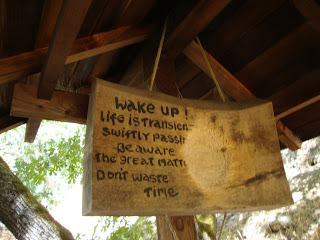 Wake up!
Life is Transien
swiftly passi
Be aware
The great matt
Don't waste
Time